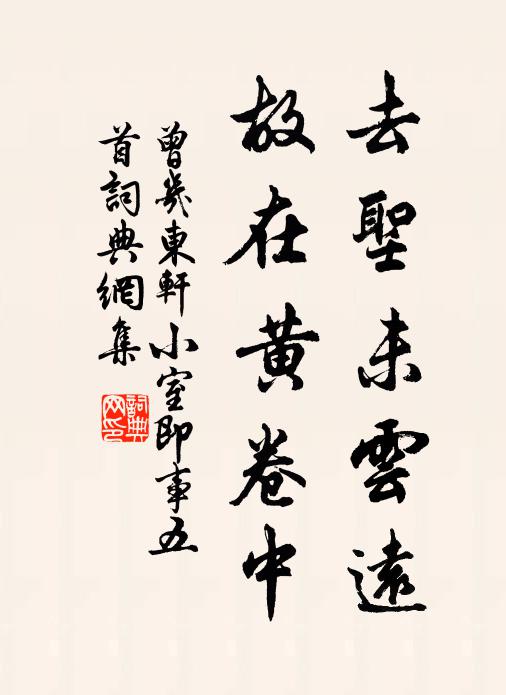 去聖未雲遠
故在黄卷中
曾幾東軒小室即事五
首詞典網集
詞典
网印